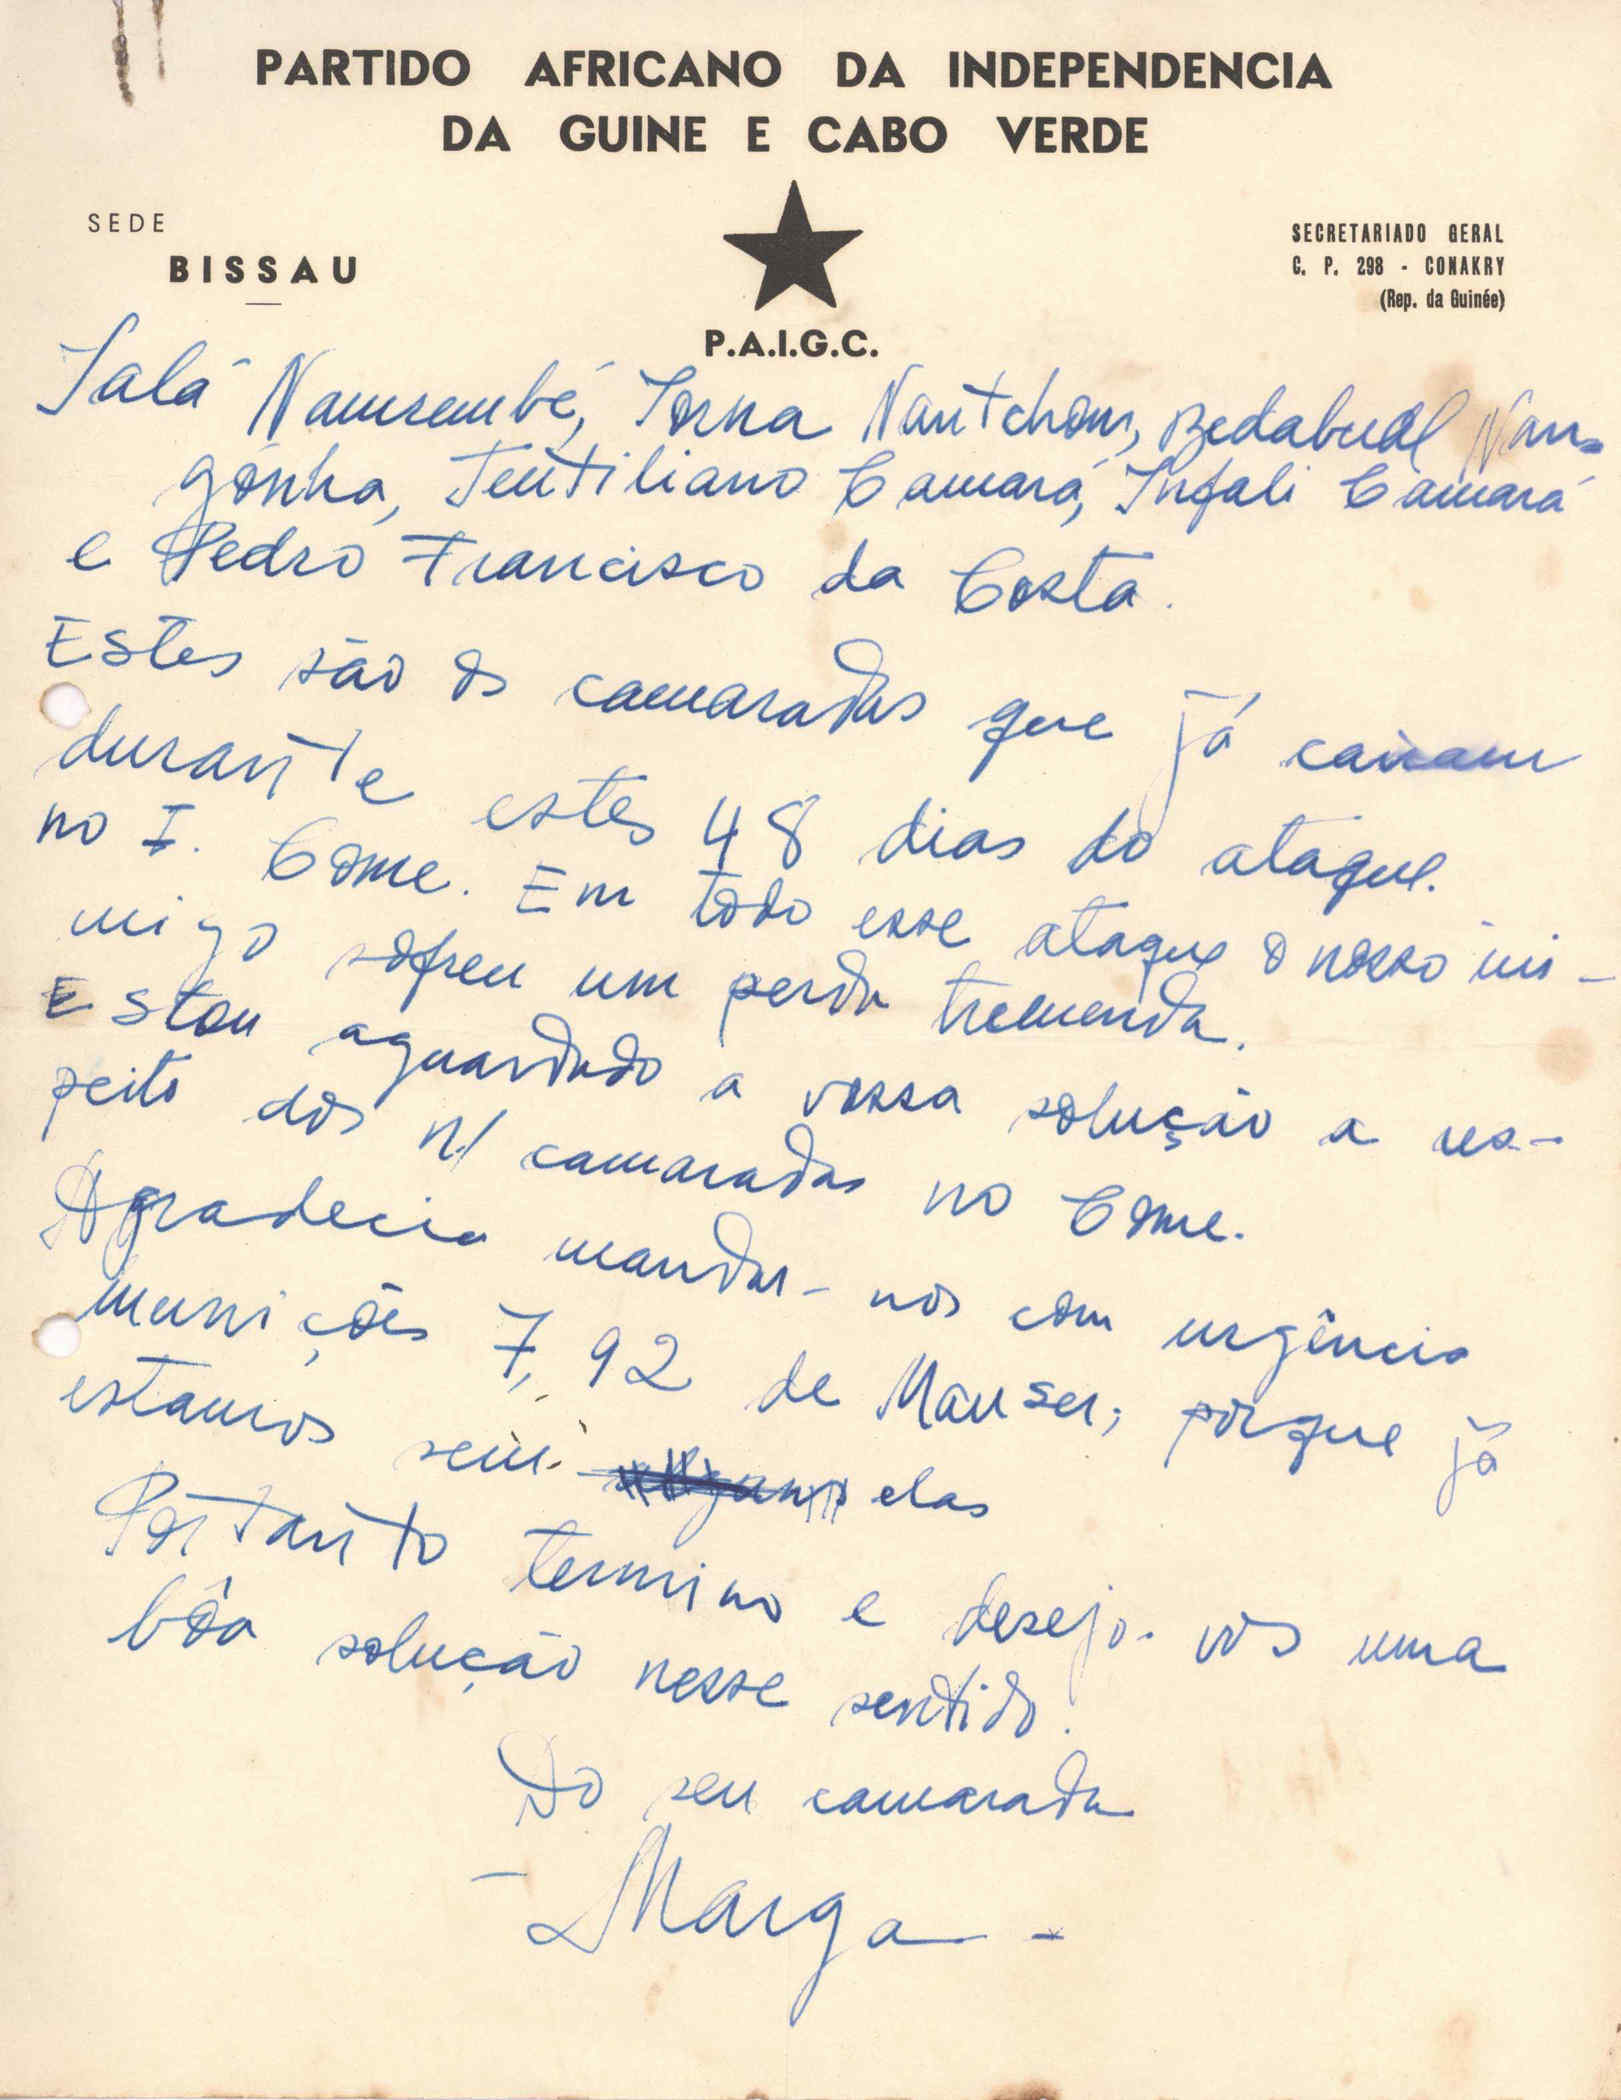 PARTIDO AFRICANO DA INDEPENDENCIA
DA GUINE E CABO VERDE
SEDE
BISSAU
SECRETARIADO GERAL
C. P. 298 - CONAKRY
(Rep. da Guinée)
P.A.I.G.C.
Salá Namsembé, Torna Nantchom, Bedabual Nan-
gónha, Teutiliano Camará, Infali Camará
e Pedro Francisco da Costa.
Estes são os camaradas que já cairam
durante estes 48 dias do ataque.
no I. Come. Em todo esse ataque o nosso ini-
migo sofreu um perda tremenda.
Estou aguardado a vossa solução a res-
peito dos n/ camaradas no Come.
Agradecia mandar-nos com urgência
munições 7,92 de Mauser, porque já
estamos sem elas
Portanto termino e desejo-vos uma
bôa solução nesse sentido.
Do seu camarada
- Marga -